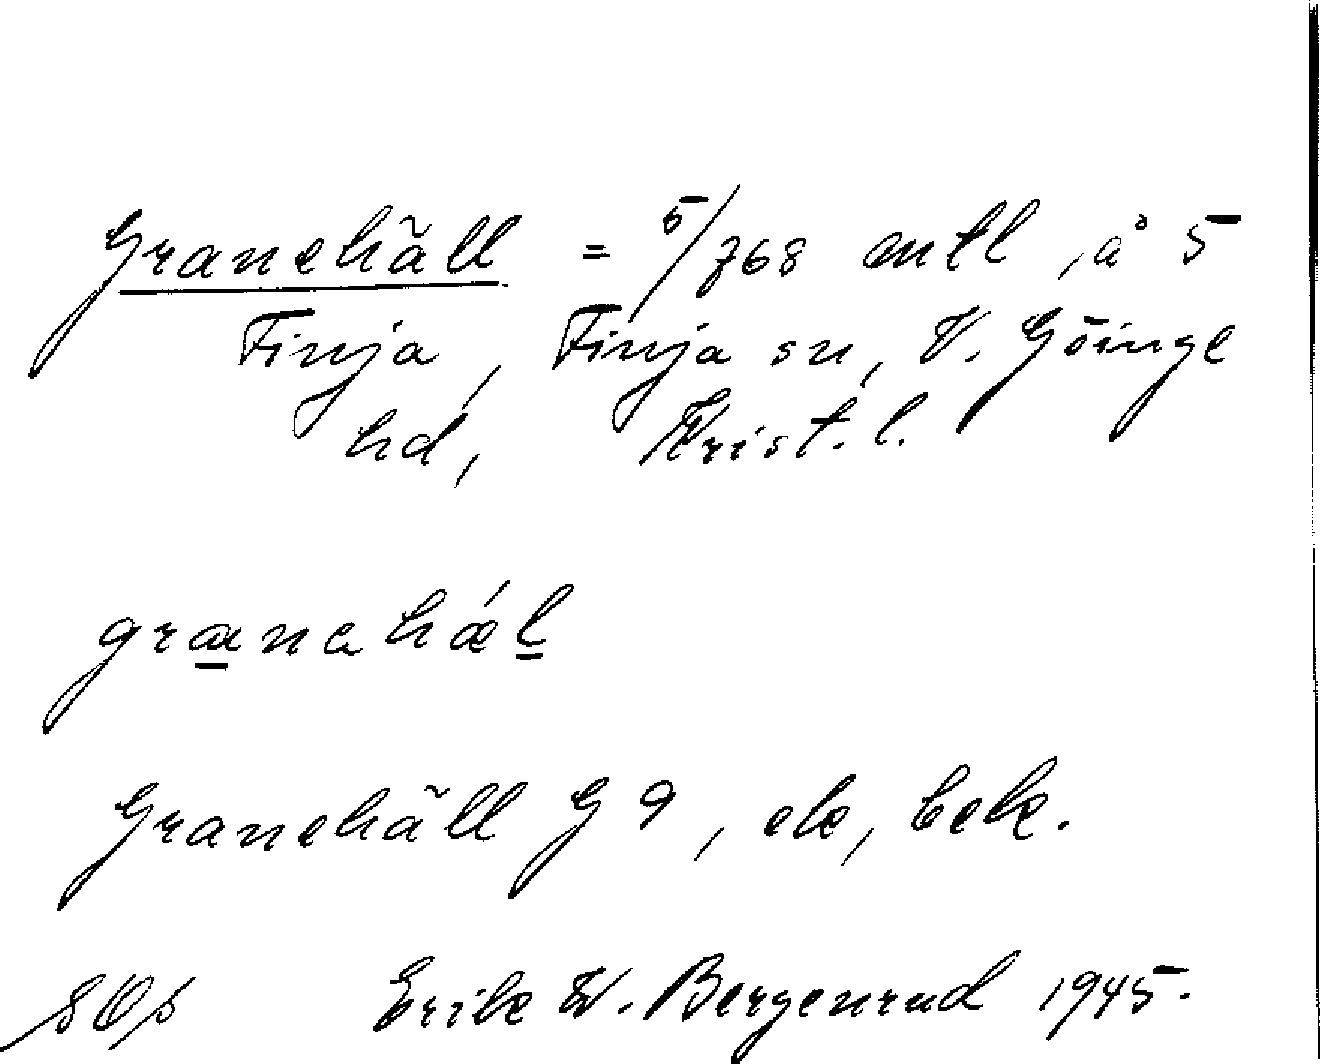 Granehäll = 5/768 mtl, å 5
Finja, Finja sn, V. Göinge
hd, Krist. l.
granahǽl
Granehäll G 9, ek, bek.
SOs Erik W. Bergenrud 1945.